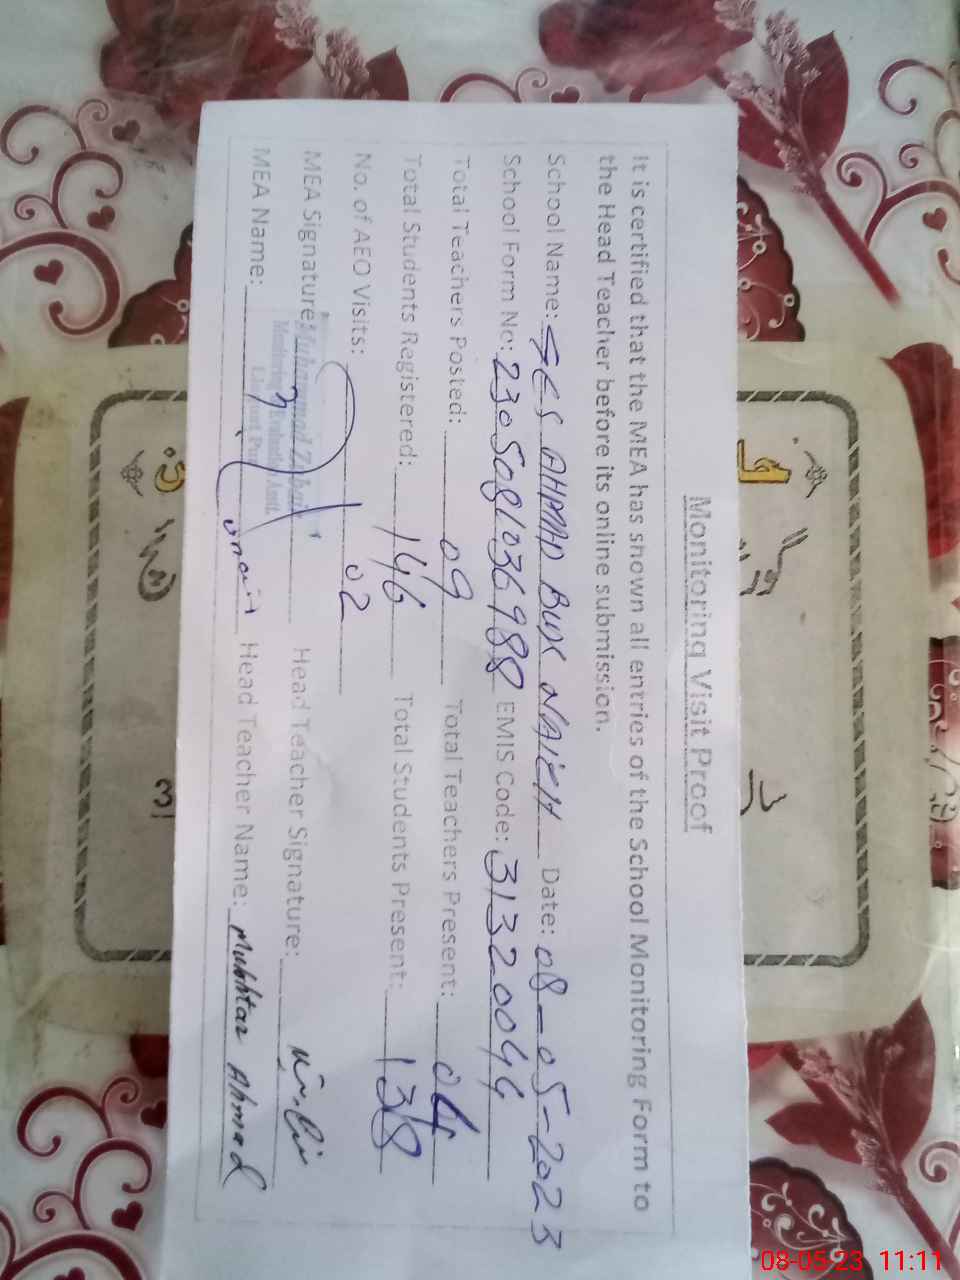 Monitoring Visit Proof
It is certified that the MEA has shown all entries of the School Monitoring Form to
the Head Teacher before its online submission.
School Name: GES AHMAD BUX NAICH Date: 08-05-2023
School Form No: 2305081036988 EMIS Code: 31320044
Total Teachers Posted: 09 Total Teachers Present: 04
Total Students Registered: 146 Total Students Present: 138
No. of AEO Visits: 02
MEA Signature: Muhammad Zubair Head Teacher Signature:
Monitoring Evaluation Assit.
Liaquat Pur
MEA Name: Head Teacher Name: Mukhtar Ahmad
08-05-23 11:11